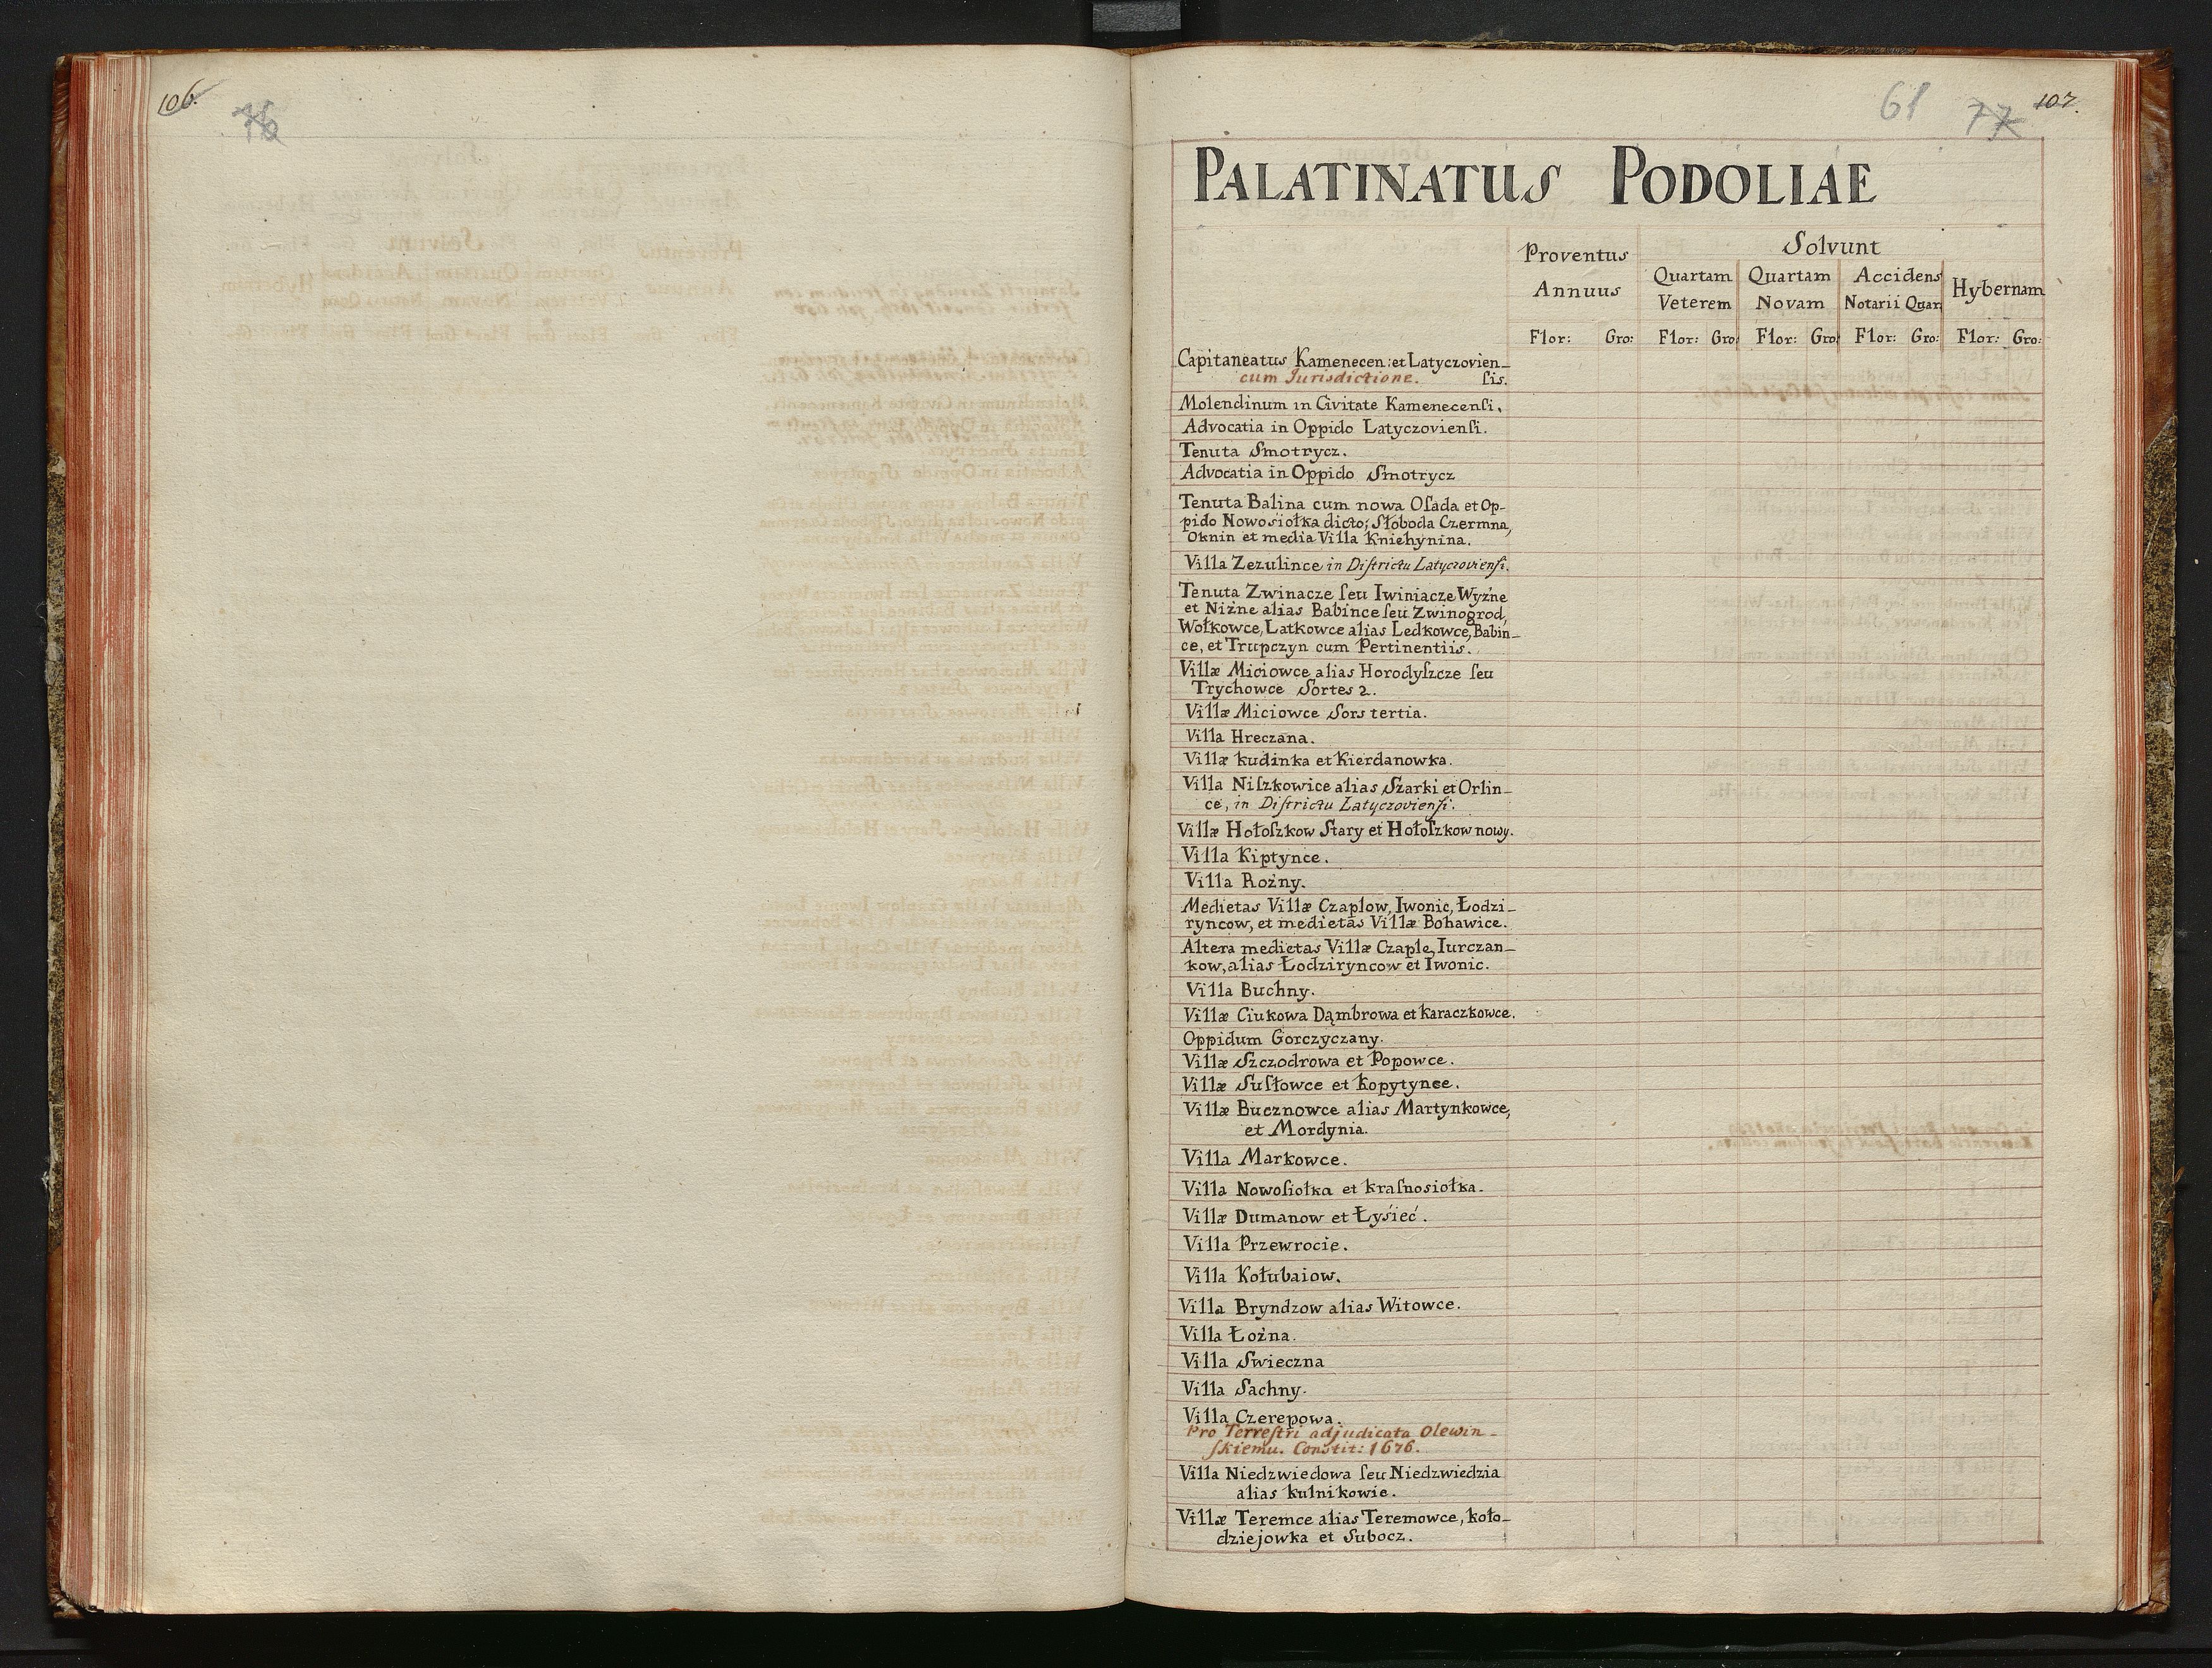 106.
76
61 77 107.
PALATINATUS PODOLIAE
Proventus Annuus
Solvunt
Quartam Veterem
Quartam Novam
Accidens Notarii Quar
Hybernam
Flor: Gro: Flor: Gro: Flor: Gro: Flor: Gro: Flor: Gro:
Capitaneatus Kamenecen: et Latyczovien-
cum Jurisdictione. ſis.
Molendinum in Civitate Kamenecenſi.
Advocatia in Oppido Latyczovienſi.
Tenuta Smotrycz.
Advocatia in Oppido Smotrycz
Tenuta Balina cum nowa Oſada et Op-
pido Nowosiołka dicto; Słoboda Czermna,
Oknin et media Villa Kniehynina.
Villa Zezulince in Diſtrictu Latyczovienſi.
Tenuta Zwinacze ſeu Iwiniacze Wyżne
et Niżne alias Babince ſeu Zwinogrod,
Wołkowce, Latkowce alias Ledkowce, Babin-
ce, et Trupczyn cum Pertinentiis.
Villæ Miciowce alias Horodyſzcze ſeu
Trychowce Sortes 2.
Villæ Miciowce Sors tertia.
Villa Hreczana.
Villæ kudinka et Kierdanowka.
Villa Niſzkowice alias Szarki et Orlin-
ce, in Diſtrictu Latyczovienſi.
Villæ Hołoſzkow Stary et Hołoſzkow nowy.
Villa Kiptynce.
Villa Rożny.
Medietas Villæ Czaplow, Iwonic, Łodzi-
ryncow, et medietas Villæ Bohawice.
Altera medietas Villæ Czaple, Iurczan-
kow, alias Łodziryncow et Iwonic.
Villa Buchny.
Villæ Ciukowa Dąmbrowa et Karaczkowce.
Oppidum Gorczyczany.
Villæ Szczodrowa et Popowce.
Villæ Suſłowce et Kopytynce.
Villæ Bucznowce alias Martynkowce,
et Mordynia.
Villa Markowce.
Villa Nowoſiołka et kraſnosiołka.
Villæ Dumanow et Łyśieć.
Villa Przewrocie.
Villa Kołubaiow.
Villa Bryndzow alias Witowce.
Villa Łożna.
Villa Swieczna
Villa Sachny.
Villa Czerepowa.
Pro Terreſtri adjudicata Olewin-
ſkiemu. Constit: 1676.
Villa Niedzwiedowa ſeu Niedzwiedzia
alias kulnikowie.
Villæ Teremce alias Teremowce, koło-
dziejowka et Subocz.